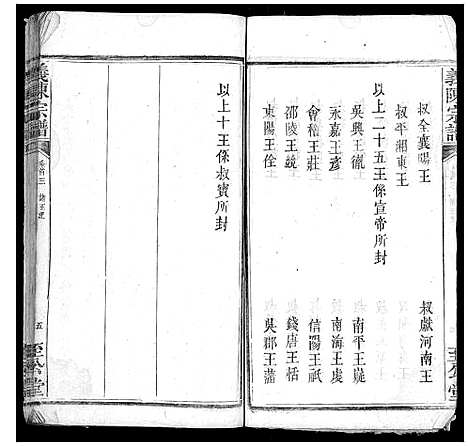 義陳宗譜
叔全襄陽王
叔獻河南王
叔平湘東王
以上二十五王係宣帝所封
吳興王胤
南平王嶷
永嘉王彥
南海王虔
會稽王莊
信陽王祗
邵陵王兢
錢唐王恬
東陽王恮
吳郡王藩
以上十王係叔寶所封
義陳宗譜
卷首三
五
至公堂
至公堂